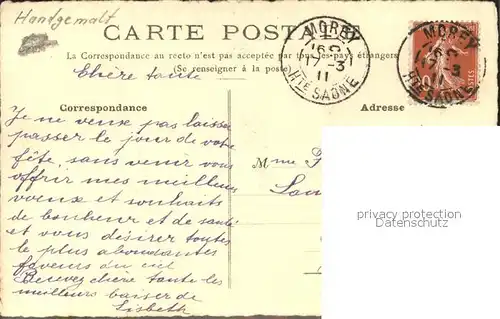 Handgemalt
CARTE POSTALE
La Correspondance au recto n'est pas acceptée par tous les pays étrangers
(Se renseigner à la poste)
MOREY
16
17-3
11
HTE SAÔNE
MOREY
3
HTE SAÔNE
10
POSTES
Chère tante
Correspondance
Adresse
Je ne veux pas laisser
passer le jour de votre
fête, sans venir vous
offrir mes meilleurs
voeux et souhaits
de bonheur et de santé
et vous désirer toutes
le plus abondantes
faveurs du ciel
Recevez chère tante les
meilleurs baiser de
Lisbeth
Mme
privacy protection
Datenschutz